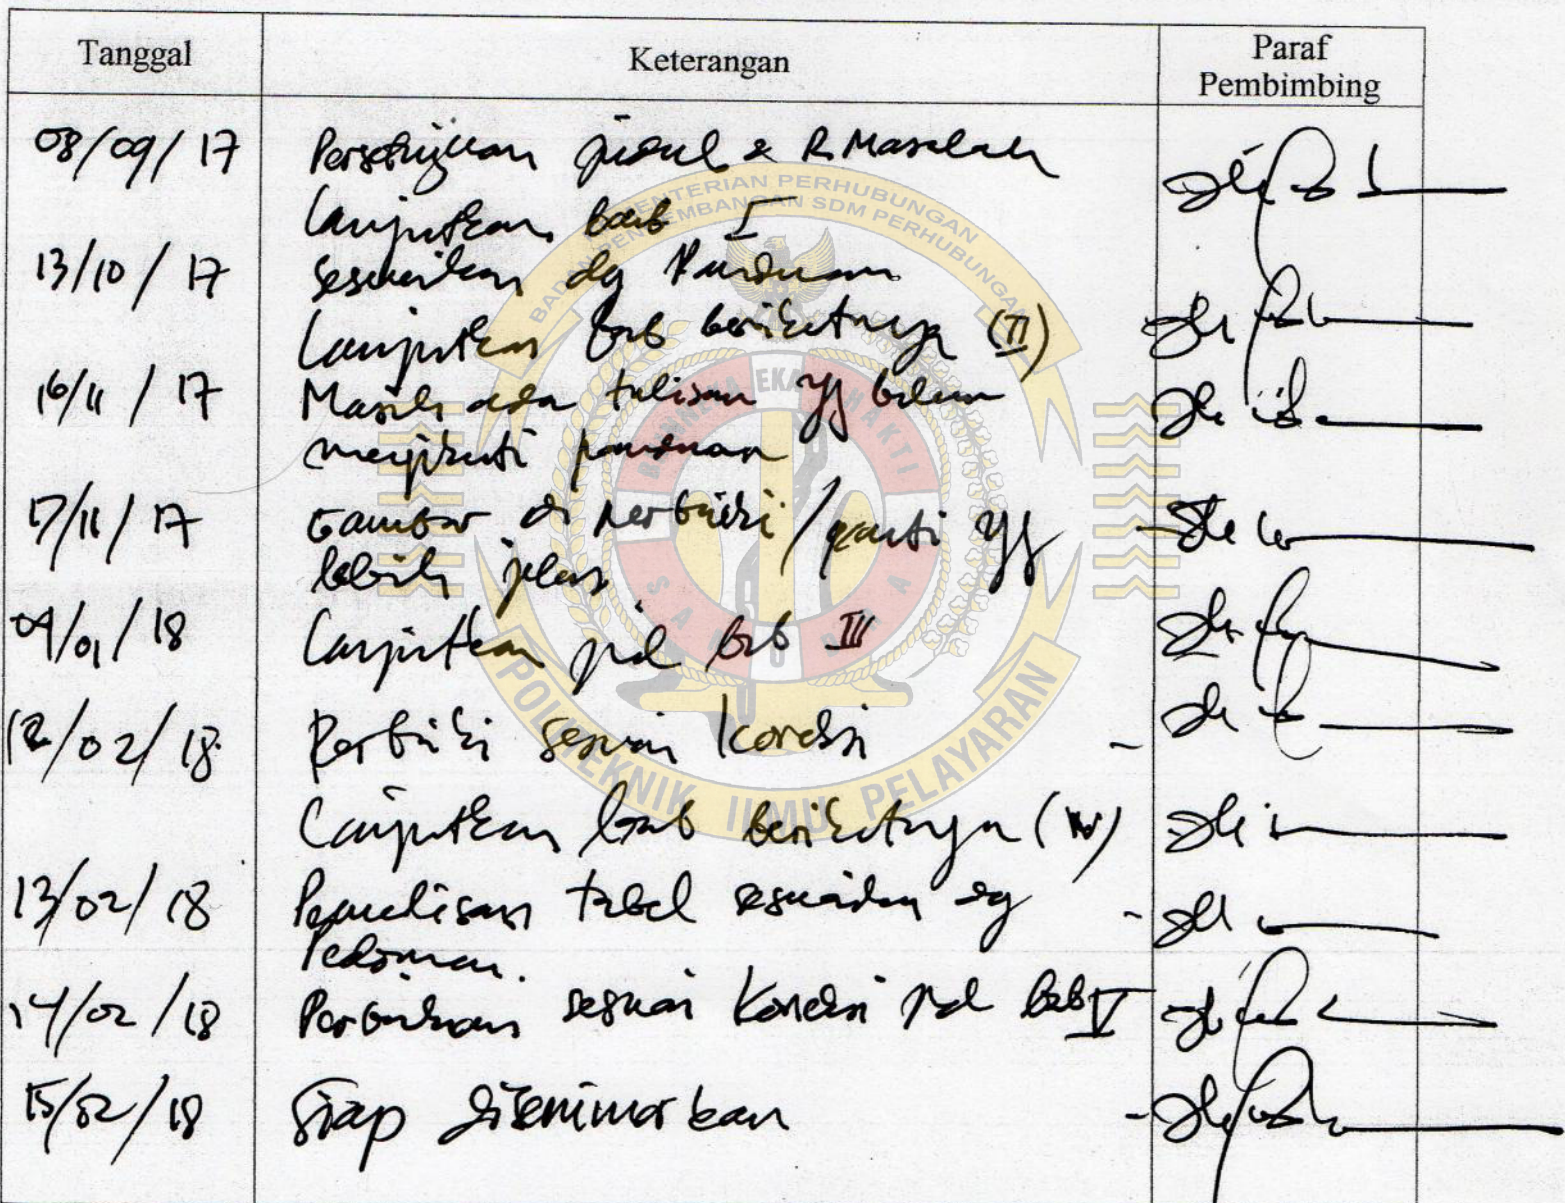 Tanggal Keterangan Paraf
Pembimbing
08/09/17 Persetujuan judul & R. Masalah
Lanjutkan bab I
13/10/17 Sesuaikan dg Panduan
Lanjutkan bab berikutnya (II)
16/11/17 Masih ada tulisan yg belum
mengikuti panduan
17/11/17 Gambar di perbaiki/ganti yg
lebih jelas
09/01/18 Lanjutkan pd bab III
12/02/18 Perbaiki sesuai koreksi
Lanjutkan bab berikutnya (IV)
13/02/18 Penulisan tabel sesuaikan dg
Pedoman.
14/02/18 Perbaikan sesuai Koreksi pd bab V
15/02/18 Siap diseminarkan
BADAN PENGEMBANGAN SDM PERHUBUNGAN
KEMENTERIAN PERHUBUNGAN
POLITEKNIK ILMU PELAYARAN